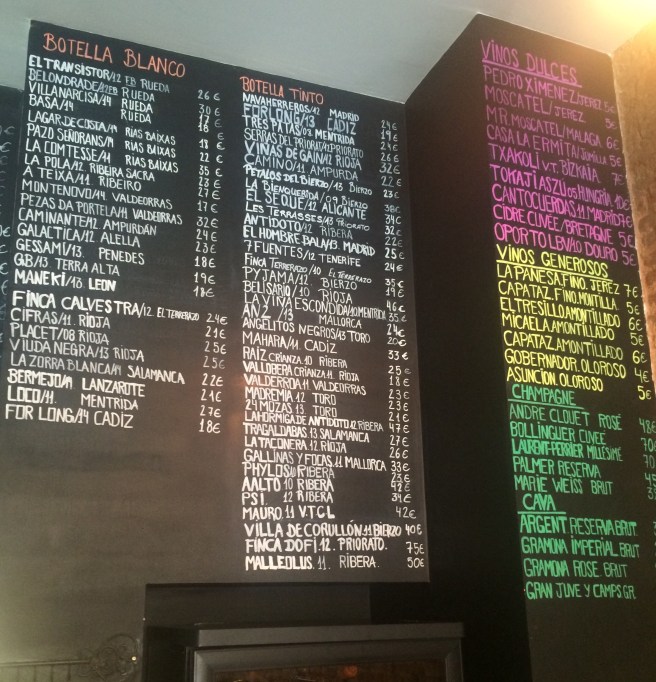 BOTELLA BLANCO
EL TRANSISTOR/12 RUEDA 26€
BELONDRADE/12 FB RUEDA
VILLANARCISA/14 RUEDA 30€
BASA/14 RUEDA 17€
LAGAR DE COSTA/14 RIAS BAIXAS 18€
PAZO SEÑORANS/14 RIAS BAIXAS 22€
LA COMTESSE/11 RIAS BAIXAS 35€
LA POLA/12 RIBEIRA SACRA
A TEIXA/11. RIBEIRO
MONTENOVO/14 VALDEORRAS
PEZAS DA PORTELA/11 VALDEORRAS
CAMINANTE/12 AMPURDÁN
GALACTICA/12 ALELLA
GESSAMÍ/13. PENEDES
GB/13 TERRA ALTA 18€
MANEKI/13. LEON 19€
FINCA CALVESTRA/12. EL TERRERAZO 24€
CIFRAS/11. RIOJA 21€
PLACET/08 RIOJA 25€
VIUDA NEGRA/13 RIOJA 25€
LA ZORRA BLANCA/14 SALAMANCA 22€
BERMEJO/14 LANZAROTE 21€
LOCO/11. MENTRIDA 27€
FOR LONG/14 CADIZ 18€
BOTELLA TINTO
NAVAHERREROS/12 MADRID 24€
FOR LONG/13 CADIZ 19€
TRES PATAS/03 MENTRIDA 24€
SERRAS DEL PRIORAT/12 PRIORATO 26€
VINAS DE GAIN/12 RIOJA 26€
CAMINO/11 AMPURDA 22€
PETALOS DEL BIERZO/13 BIERZO 23€
LA BIENQUERIDA/09 BIERZO 38€
EL SEQUE/12 ALICANTE 34€
LES TERRASSES/13 PRIORATO
ANTIDOTO/12 RIBERA
EL HOMBRE BALA/13 MADRID 25€
7 FUENTES/12 TENERIFE 24€
FINCA TERRERAZO/10 EL TERRERAZO
PYJAMA/12 BIERZO
BELISARIO/10 RIOJA
LA VIÑA ESCONDIDA/10 MENTRIDA
AN2/13 MALLORCA
ANGELITOS NEGROS/13 TORO 20€
MAHARA/11 CADIZ 33€
RAÍZ CRIANZA.10 RIBERA 25€
VALLOBERA CRIANZA.11 RIOJA 18€
VALDERROA/11 VALDEORRAS 23€
MADREMIA 12 TORO 23€
24 MOZAS 13 TORO 21€
LA HORMIGA DE ANTIDOTO 12 RIBERA 47€
TRAGALDABAS 13 SALAMANCA 27€
LA TACONERA 12. RIOJA
GALLINAS Y FOCAS. 11 MALLORCA 33€
PHYLOS 10 RIBERA 23€
AALTO 10 RIBERA 42€
PSI 12 RIBERA 34€
MAURO. 11 V.T.CL 42€
VILLA DE CORULLÓN. 11 BIERZO 40€
FINCA DOFÍ.12. PRIORATO. 75€
MALLEOLUS. 11. RIBERA. 50€
VINOS DULCES
PEDRO XIMENEZ/JEREZ 5€
MOSCATEL/JEREZ 5€
MR MOSCATEL/MALAGA 6€
CASA LA ERMITA/JUMILLA 5€
TXAKOLI V.T. BIZKAIA 7€
TOKAJI ASZU 05 HUNGRIA 10€
CANTOCUERDAS 11 MADRID 7€
CIDRE CUVEE/BRETAGNE 5€
OPORTO LBV/10 DOURO 5€
VINOS GENEROSOS
LA PANESA FINO. JEREZ 7€
CAPATAZ. FINO. MONTILLA 5€
EL TRESILLO AMONTILLADO 6€
MICAELA AMONTILLADO 5€
CAPATAZ. AMONTILLADO 6€
GOBERNADOR. OLOROSO 4€
ASUNCION. OLOROSO 5€
CHAMPAGNE
ANDRE CLOUET ROSÉ 48€
BOLLINGUER CUVEE 70€
LAURENT-PERRIER MILLÉSIMÉ 70
PALMER RESERVA 45
MARIE WEISS BRUT
CAVA
ARGENT. RESERVA BRUT.
GRAMONA IMPERIAL BRUT
GRAMONA ROSE. BRUT
GRAN JUVE Y CAMPS GR.